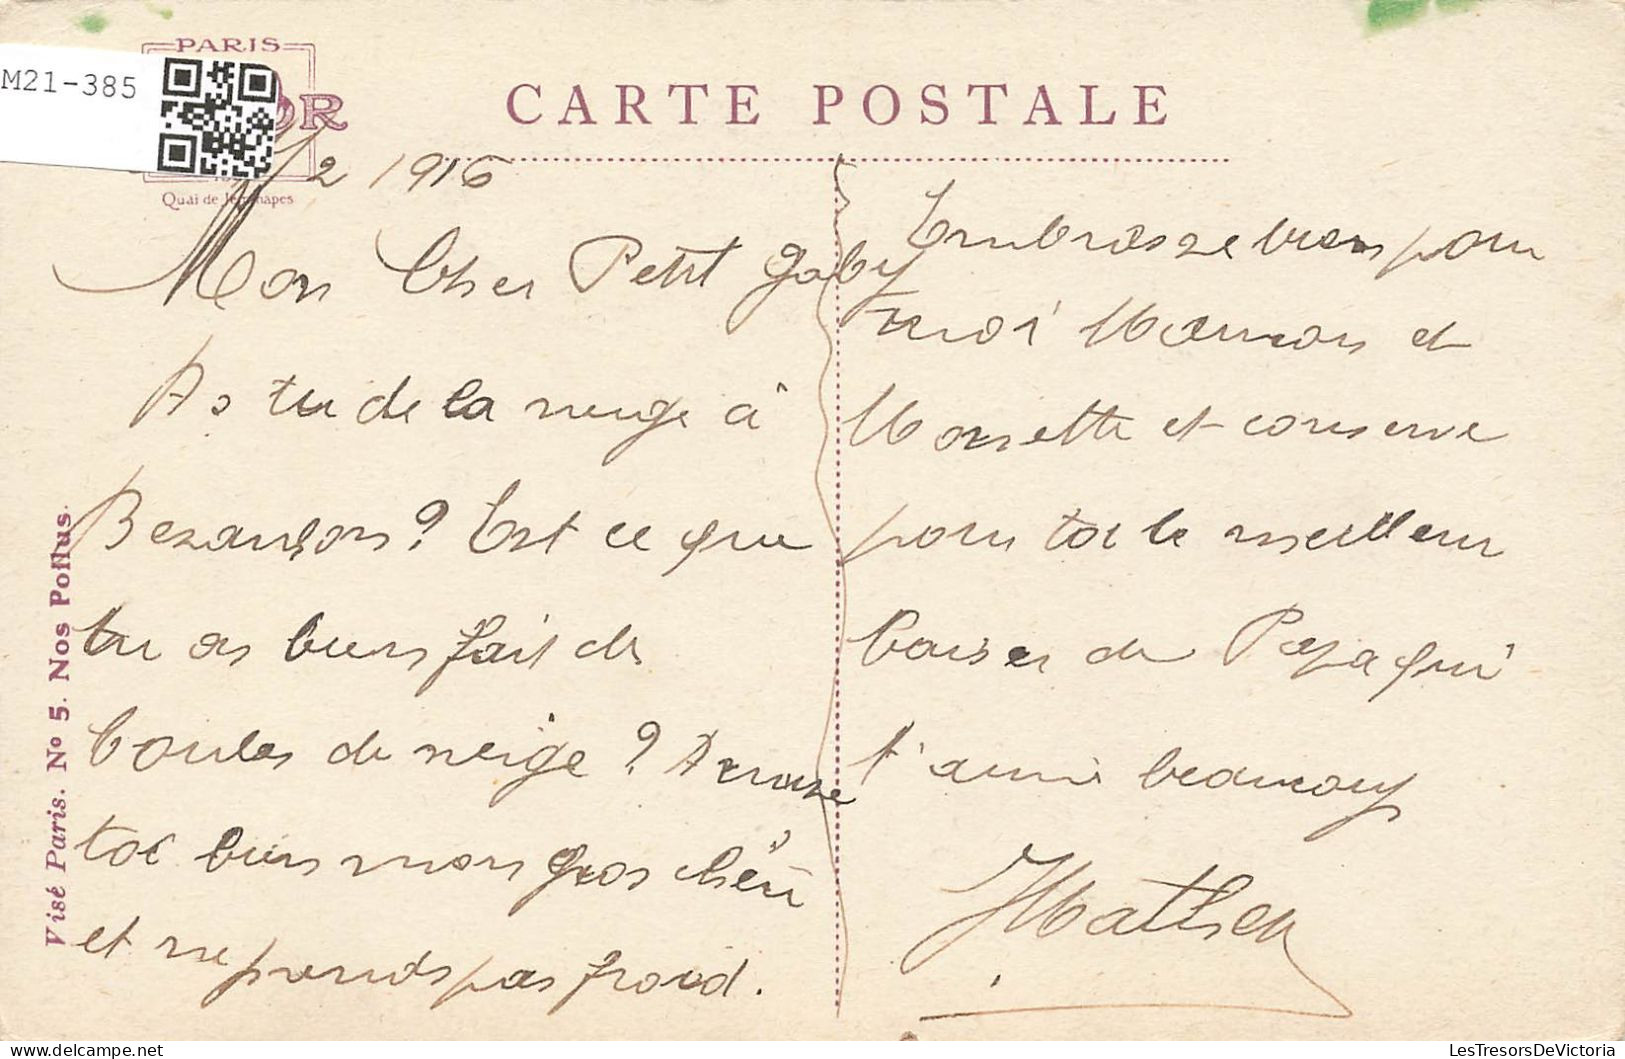 M21-385
PARIS
OR
Quai de Jemmapes
CARTE POSTALE
2 1916
Mon Cher Petit Gaby
As tu de la neige à
Besançon? Est ce que
tu as bien fait de
boules de neige? Amuse
toi bien mon gros chéri
et ne prends pas froid.
Embrasse bien pour
moi Maman et
et conserve
pour toi le meilleur
baiser de Papa qui
t'aime beaucoup
Visé Paris. Nº 5. Nos Poilus.
LesTresorsDeVictoria